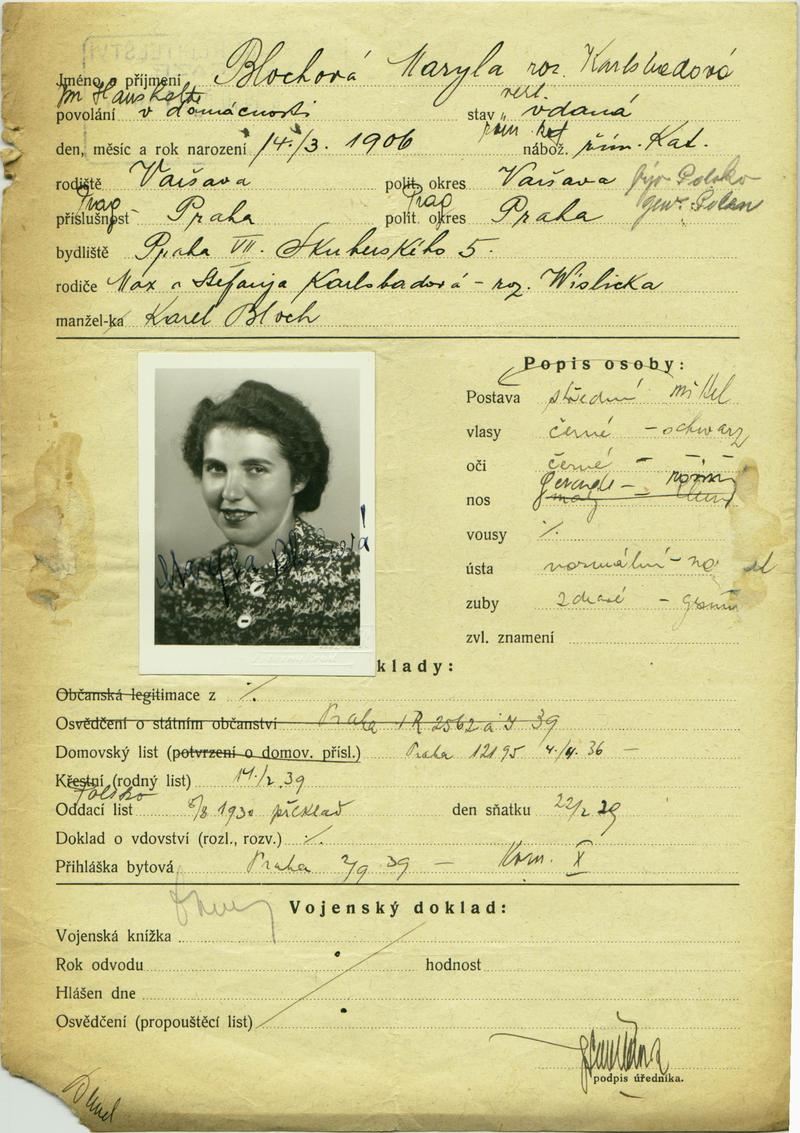 Jméno a příjmení Blochová Maryla roz. Karlsbadová
im Haushalte verh.
povolání v domácnosti stav vdaná
röm. kat
den, měsíc a rok narození 14./3. 1906 nábož. řím. Kat.
rodiště Varšava polit. okres Varšava býv. Polsko
Prag Prag gew. Polen
příslušnost Praha polit. okres Praha
bydliště Praha VII. Skuherského 5.
rodiče Max a Stefanja Karlsbadová - roz. Wislicka
manžel-ka Karel Bloch
Popis osoby:
Postava střední mittel
vlasy černé - schwarz
oči černé -
Gerande -
nos
vousy ⁒
ústa normální -
zuby zdravé -
zvl. znamení
Maryla Blochová
klady:
Občanská legitimace z ⁒
Osvědčení o státním občanství Praha 39
Domovský list (potvrzení o domov. přísl.) Praha 12195 4./4. 36 —
Křestní (rodný list) 14./2. 39
Polsko
Oddací list 1930 překlad den sňatku 22/2 29
Doklad o vdovství (rozl., rozv.) ⁒
Přihláška bytová Praha 2/9 39 — Kom. X
Vojenský doklad:
Vojenská knížka
Rok odvodu hodnost
Hlášen dne
Osvědčení (propouštěcí list)
podpis úředníka.